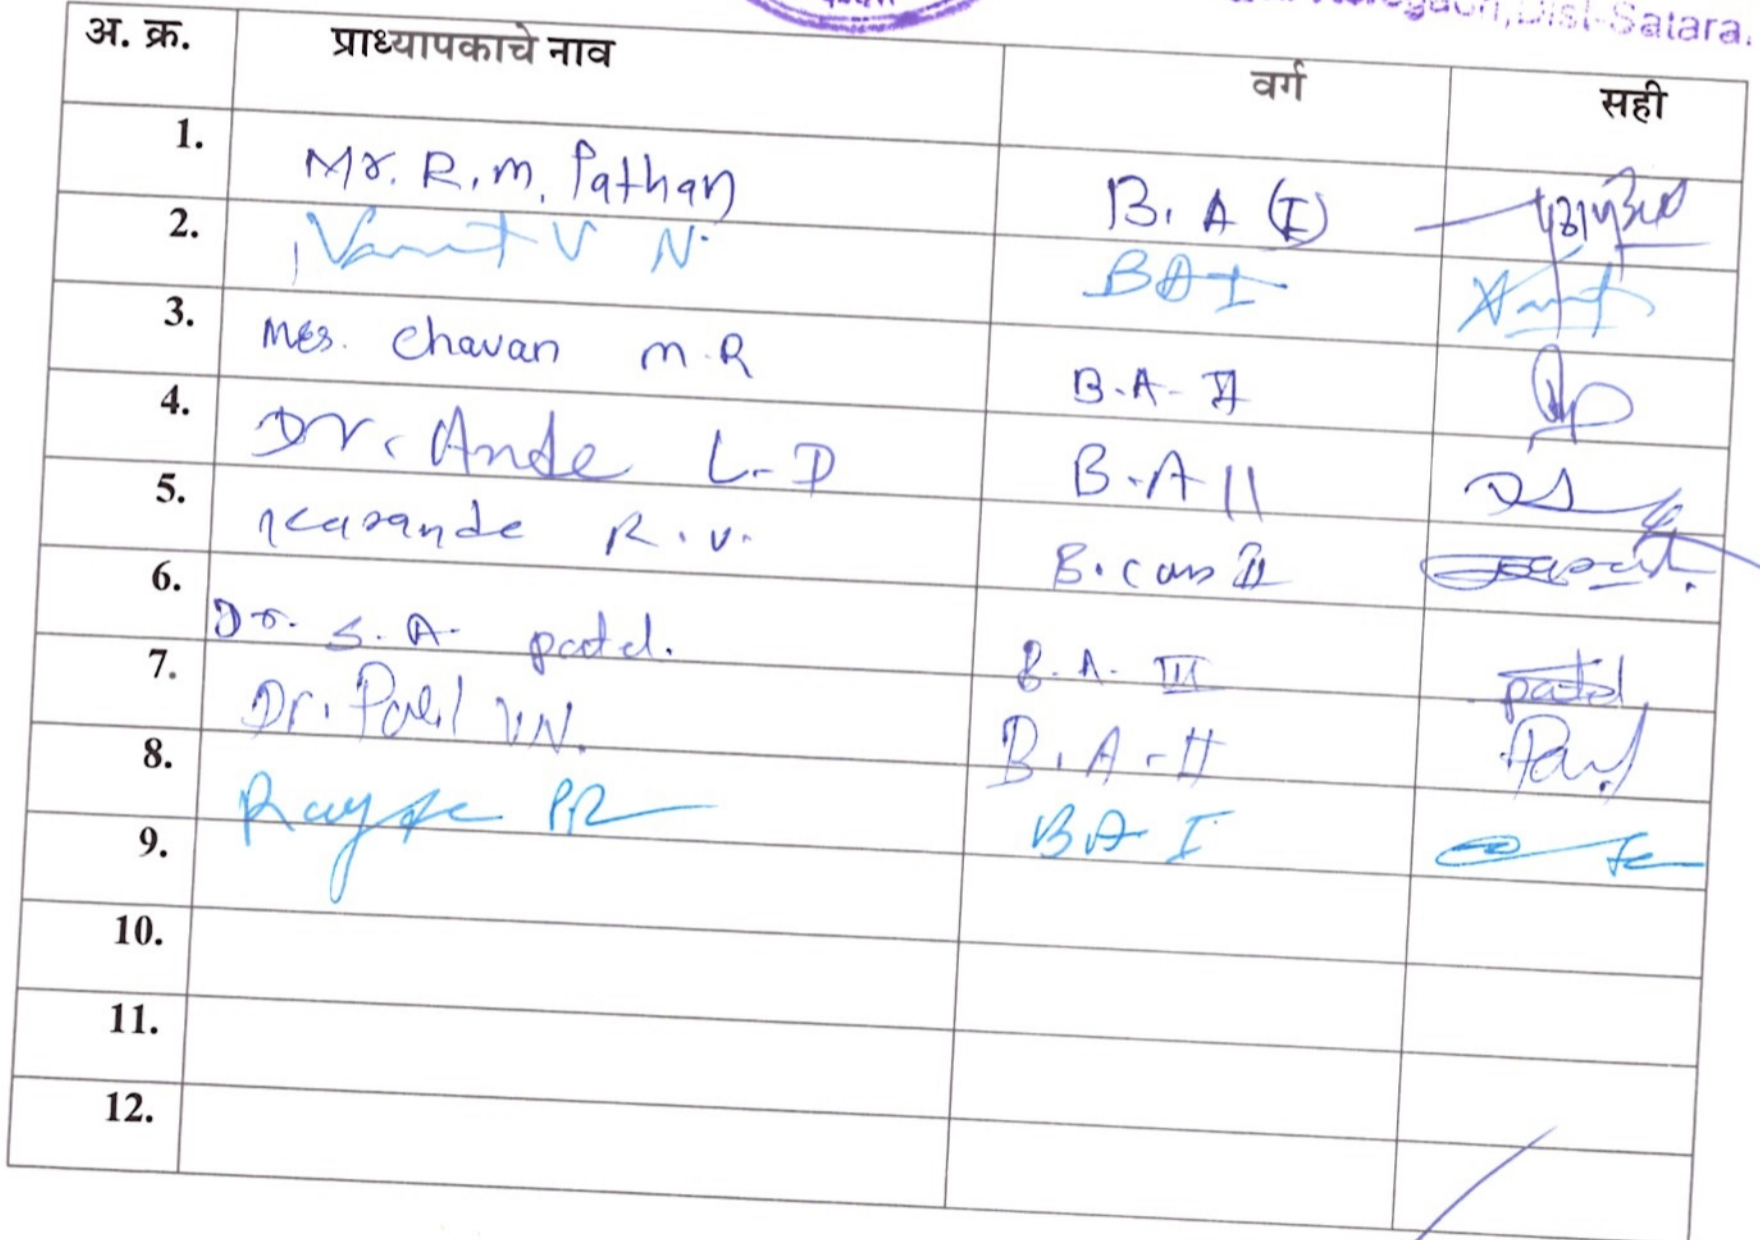 Dist-Satara.
अ. क्र. प्राध्यापकाचे नाव वर्ग सही
1. Mr. R. M. Pathan B. A (I)
2. V N. BA I
3. Mrs. Chavan M.R B.A-II
4. Dr. Ande L.D B.A II
5. R.V. B.com II
6. Dr. S. A. patel. B.A. III patel
7. Dr. Patil V.N. B.A-II
8. BA I
9.
10.
11.
12.